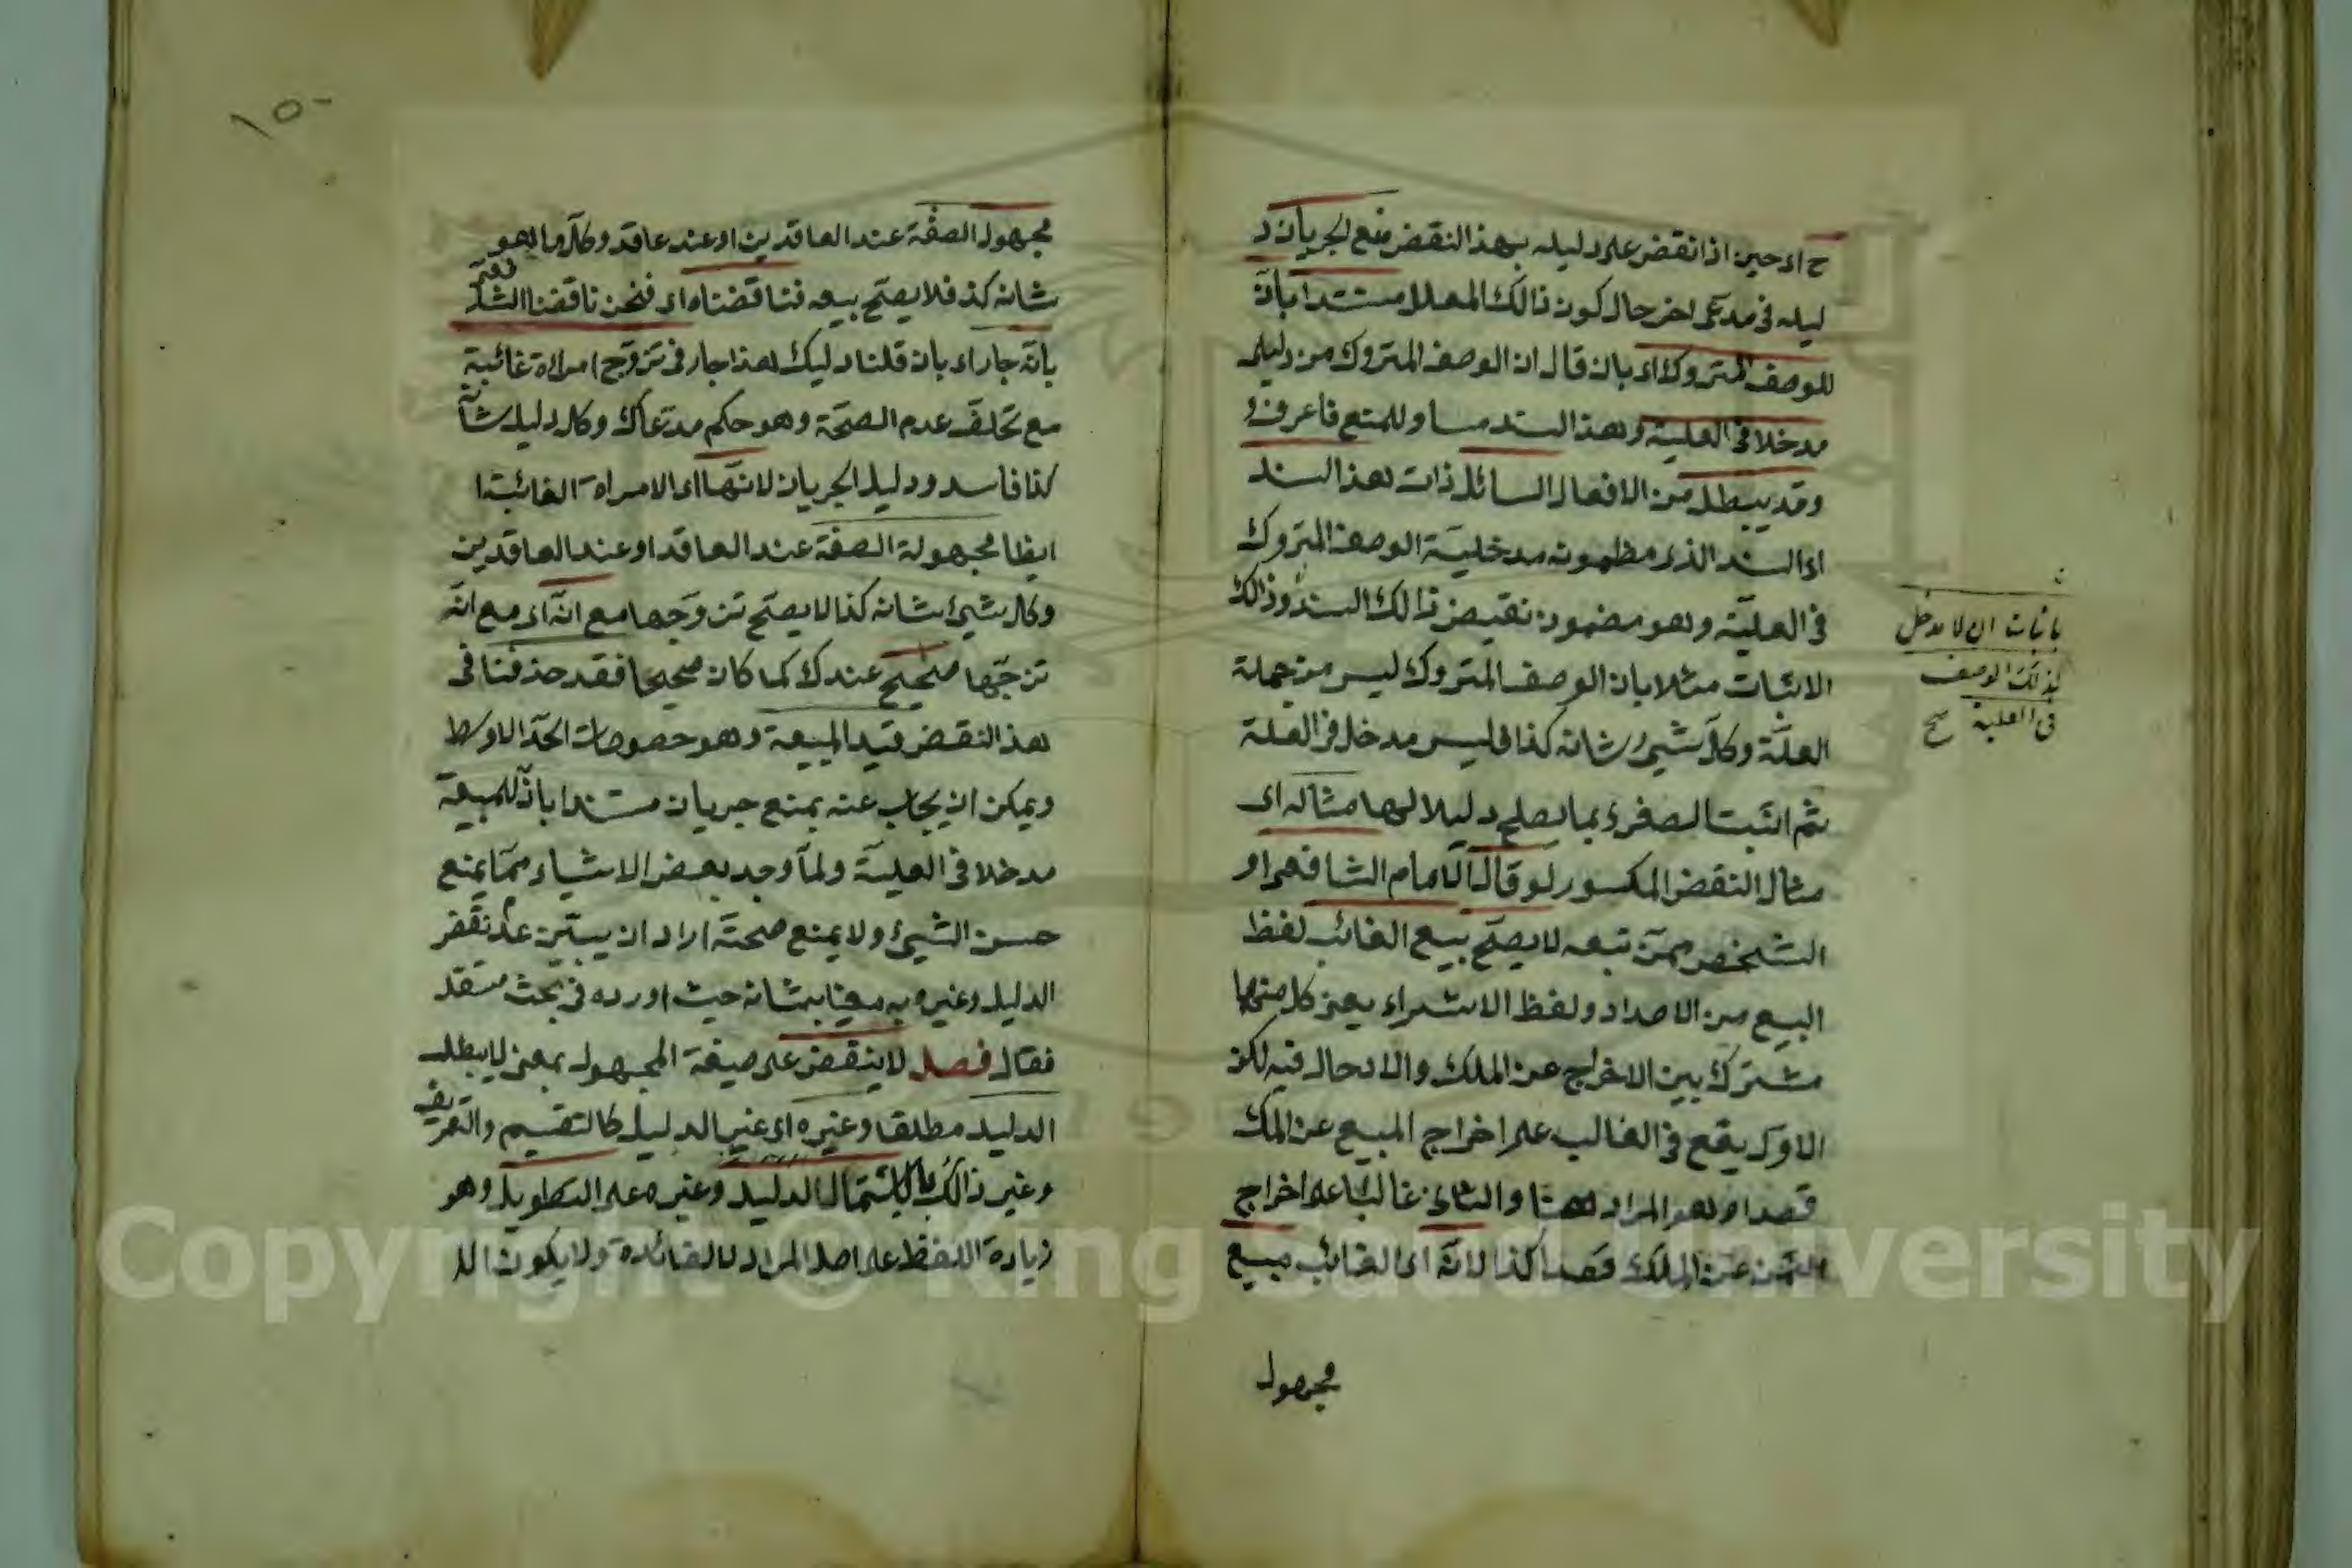 ح اى حين اذا نقض على دليله بهذا النقض منع الجريان د
ليله فى مدعى اخر حال كون ذالك المعلل مستندا بان
للوصف المتروك اى بان قال ان الوصف المتروك من دليلى
مدخلا فى العلية وهذا السند مساو للمنع فاعرف و
وقد يبطل من الافعال السائل ذات هذا السند
اى السند الذى مظمونه مدخلية الوصف المتروك
فى العلية وهو مضمون نقيض ذالك السند وذالك
باثبات ان لا مدخل
لذلك الوصف
فى العلية صح
الاثبات مثلا بان الوصف المتروك ليس من جملة
العلة وكل شيئ شانه كذا فليس مدخل فى العلة
ثم اثبت الصغرى بما يصلح دليلا لها مثاله اى
مثال النقض المكسور لو قال الامام الشافعى او
الشخص ممن تبعه لا يصح بيع الغائب لفظ
البيع من الاضداد ولفظ الاشتراء يعنى كل منها
مشترك بين الاخراج عن الملك والادحال فيه لكن
الاول يقع فى الغالب على اخراج المبيع عن الملك
قصدا وهو المراد ههنا والثانى غالبا على اخراج
الثمن عن الملك قصدا كذا لانه اى الغائب مبيع
مجهول
١٥٠
مجهول الصفة عند العاقدين او عند عاقد وكل ما هو
شانه كذ فلا يصح بيعه فناقضناه اى فنحن ناقضنا الشا
فعى
بانه جار اى بان قلنا دليلك هذا جار فى تزوج امراة غائبة
مع تخلف عدم الصحة وهو حكم مدعاك وكل دليل شانه
كذا فاسد ودليل الجريان لانها اى الامراة الغائبة ا
ايظا مجهولة الصفة عند العاقد او عند العاقدين
وكل شيئ شانه كذا لا يصح تزوجها مع انه اى مع انه
تزجها صحيح عندك كما كان صحيحا فقد حذفنا فى
هذ النقض قيد المبيعة وهو حصوصات الحد الاوسط
ويمكن ان يجاب عنه بمنع جريان مستندا بان للمبيعة
مدخلا فى العلية ولما وجد بعض الاشياء مما يمنع
حسن الشيئ ولا يمنع صحته اراد ان يبين عدم نقض
الدليل وغيره به معنا بشانه حيث اورده فى بحث مستقل
فقال فصل لا ينقض على صيغة المجهول بمعنى لا يبطل
الدليل مطلقا وغيره اى غير الدليل كالتقسيم والتعريف
وغير ذالك باشتمال الدليل وغيره على التطويل وهو
زيادة اللفظ على اصل المراد لا لفائدة ولا يكون الل